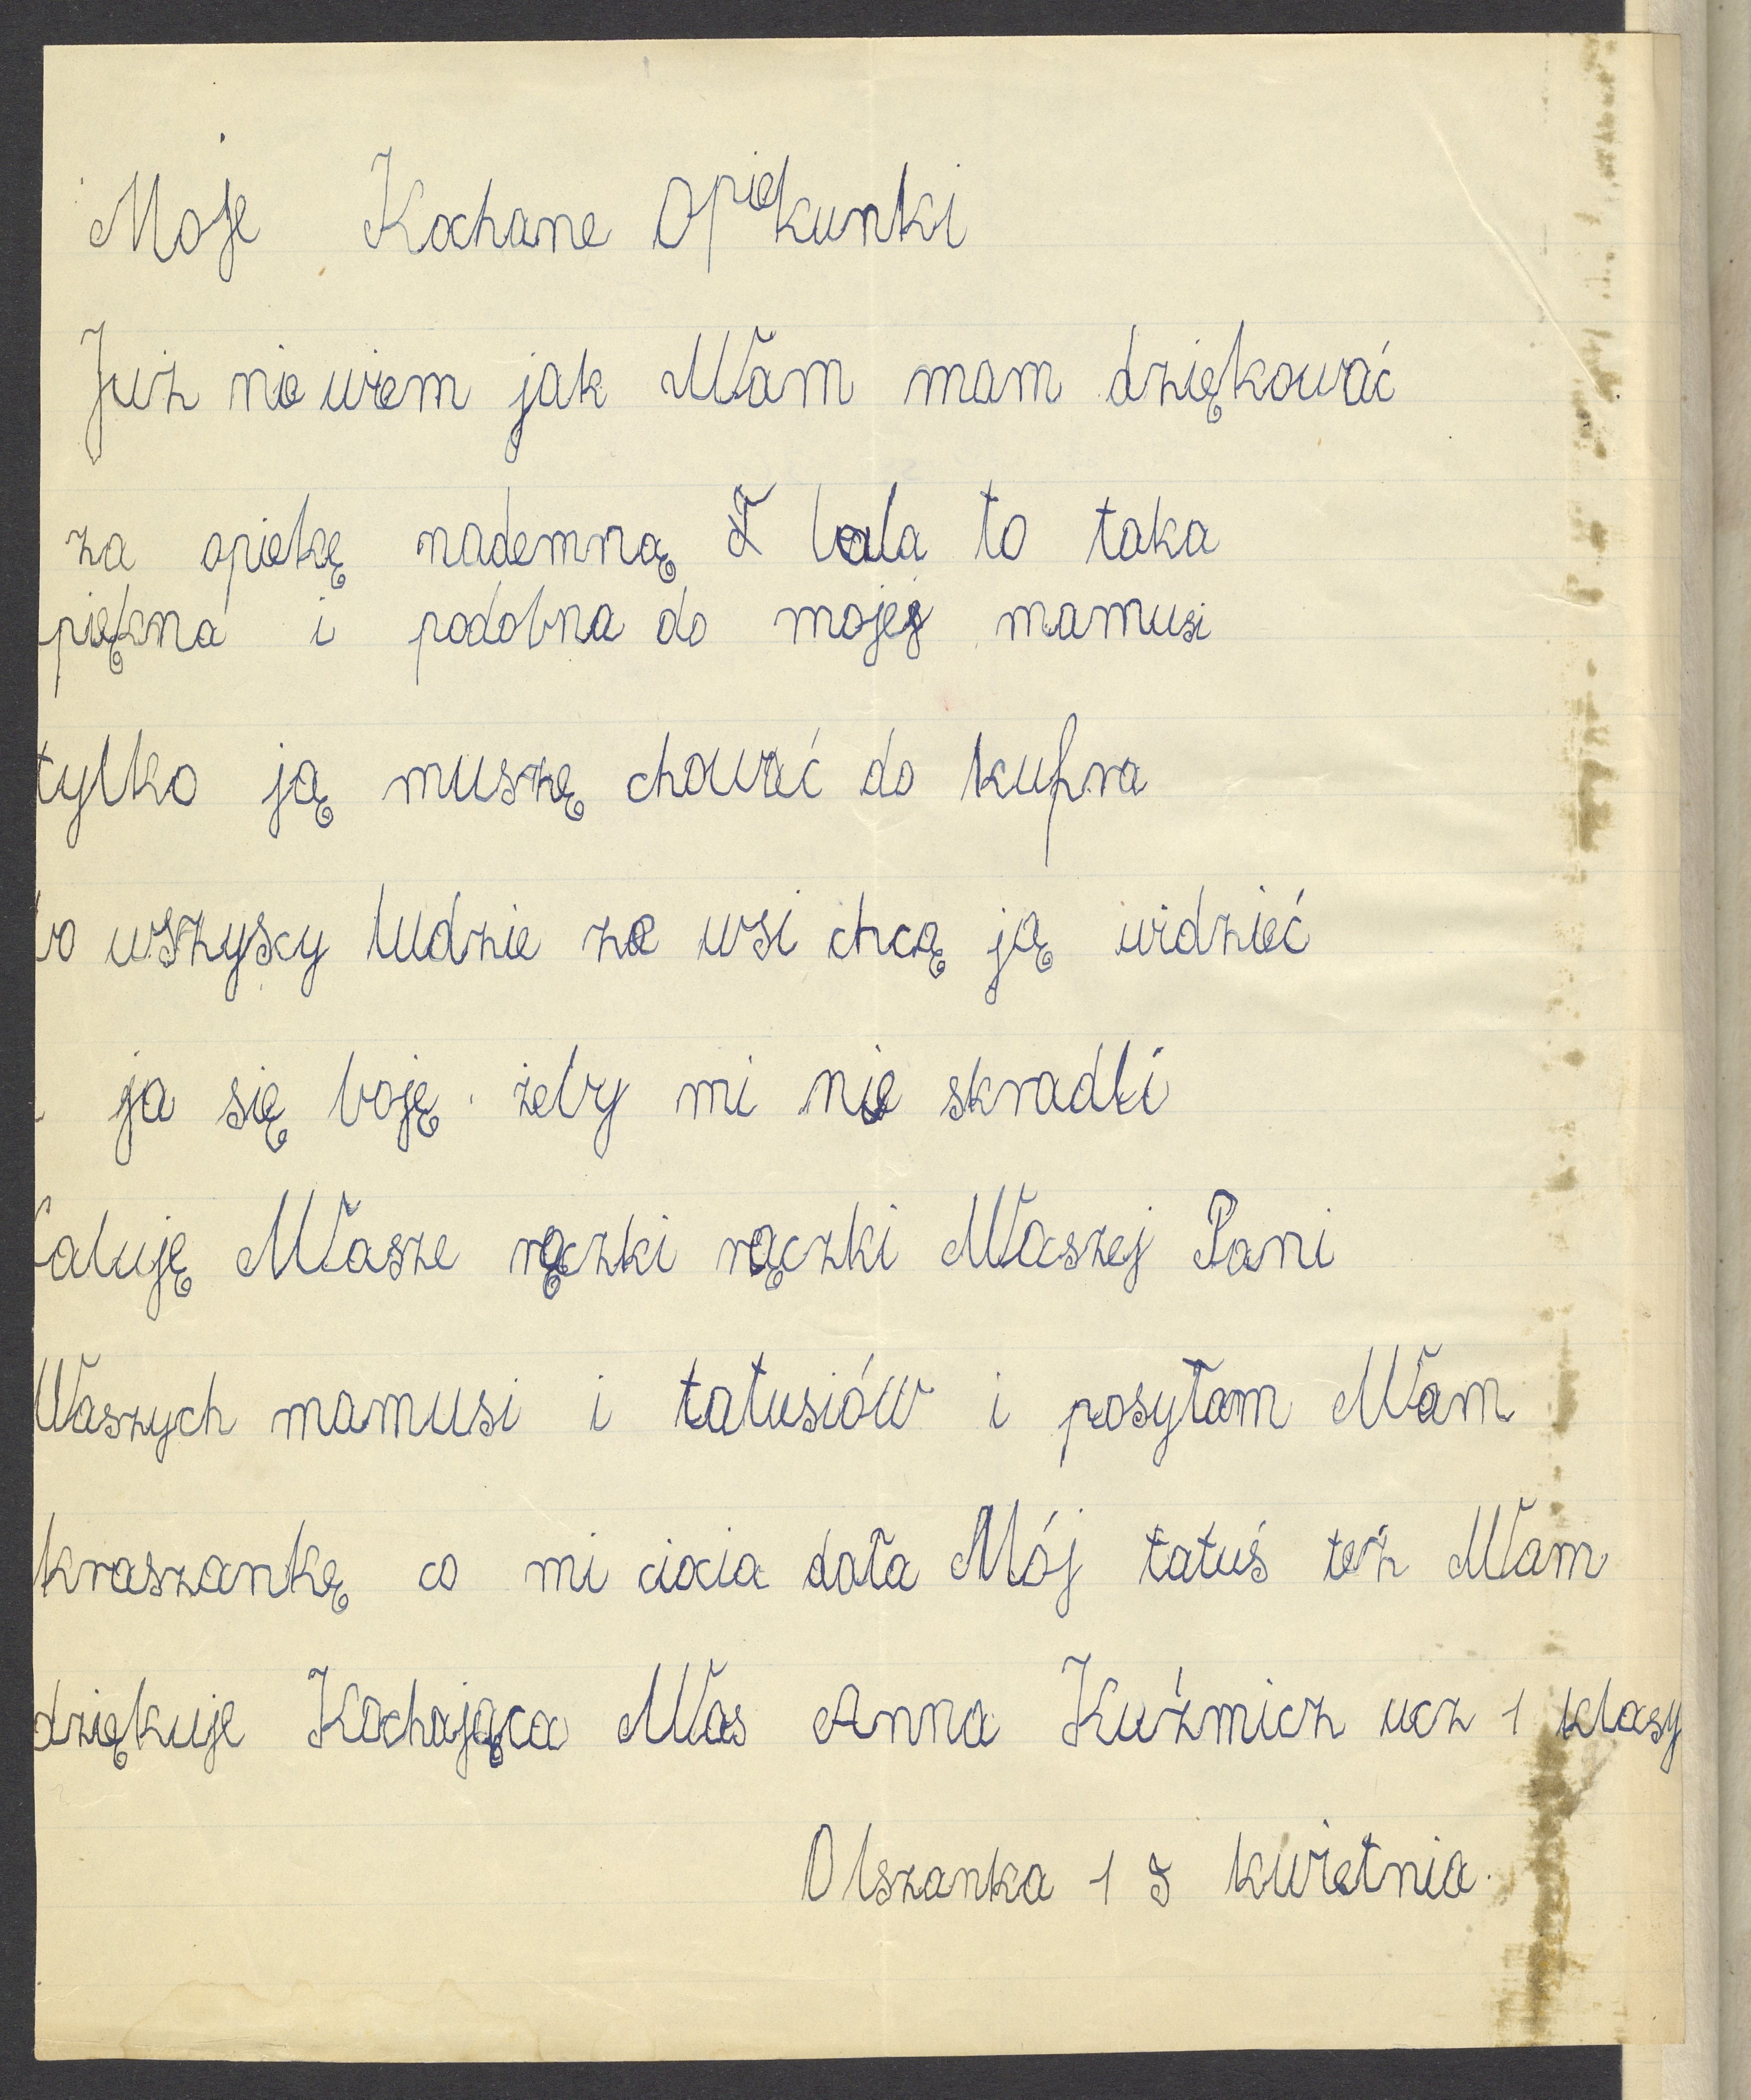 Moje Kochane Opiekunki
Już nie wiem jak Wam mam dziękować
za opiekę nademną I lala to taka
piękna i podobna do mojej mamusi
tylko ją muszę chować do kufra
bo wszyscy ludzie ze wsi chcą ją widzieć
ja się boję żeby mi nie skradli
Caluję Wasze rączki rączki Waszej Pani
Waszych mamusi i tatusiów i posyłam Wam
kraszankę co mi ciocia dała Mój tatuś też Wam
dziękuje Kochająca Was Anna Kuźmicz ucz 1 klasy
Olszanka 1 kwietnia.